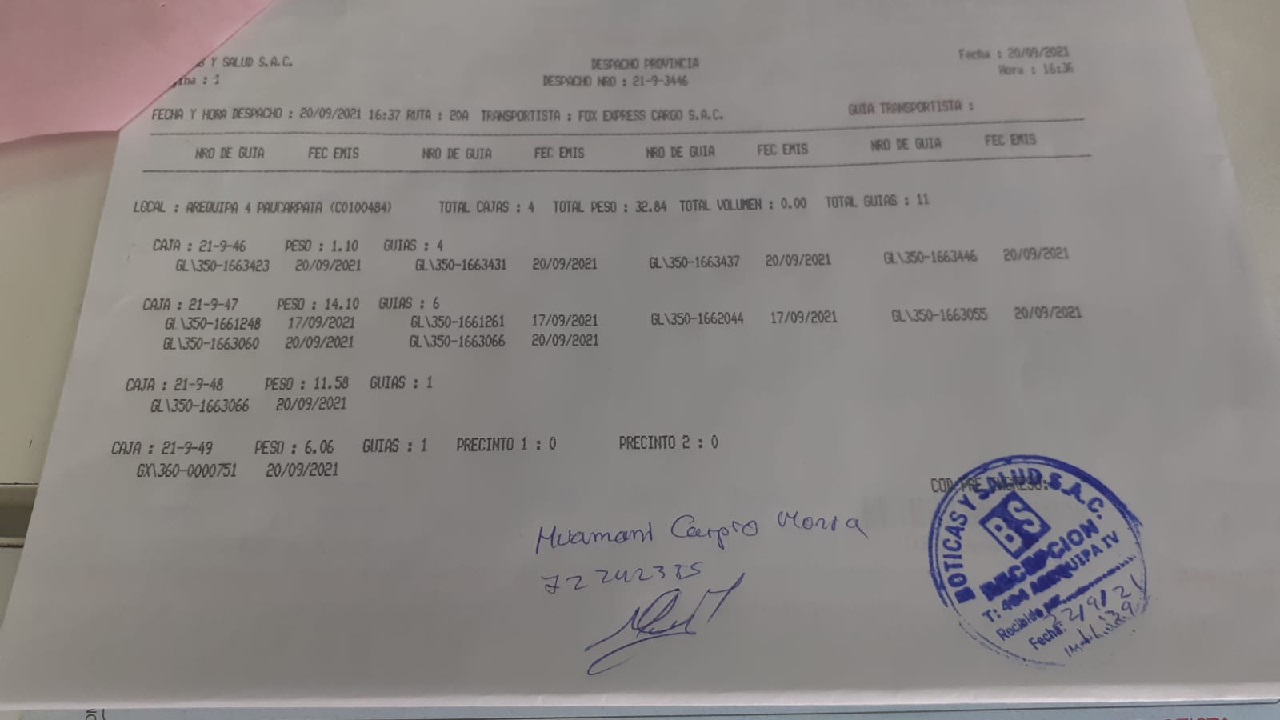 S Y SALUD S.A.C.
DESPACHO PROVINCIA
Fecha : 20/09/2021
ina : 1
DESPACHO NRO : 21-9-3446
Hora : 16:36
FECHA Y HORA DESPACHO : 20/09/2021 16:37 RUTA : 20A TRANSPORTISTA : FOX EXPRESS CARGO S.A.C. GUIA TRANSPORTISTA :
NRO DE GUIA FEC EMIS NRO DE GUIA FEC EMIS NRO DE GUIA FEC EMIS NRO DE GUIA FEC EMIS
LOCAL : AREQUIPA 4 PAUCARPATA (C0100484) TOTAL CAJAS : 4 TOTAL PESO : 32.84 TOTAL VOLUMEN : 0.00 TOTAL GUIAS : 11
CAJA : 21-9-46 PESO : 1.10 GUIAS : 4
GL\350-1663423 20/09/2021 GL\350-1663431 20/09/2021 GL\350-1663437 20/09/2021 GL\350-1663446 20/09/2021
CAJA : 21-9-47 PESO : 14.10 GUIAS : 6
GL\350-1661248 17/09/2021 GL\350-1661261 17/09/2021 GL\350-1662044 17/09/2021 GL\350-1663055 20/09/2021
GL\350-1663060 20/09/2021 GL\350-1663066 20/09/2021
CAJA : 21-9-48 PESO : 11.58 GUIAS : 1
GL\350-1663066 20/09/2021
CAJA : 21-9-49 PESO : 6.06 GUIAS : 1 PRECINTO 1 : 0 PRECINTO 2 : 0
GX\360-0000751 20/09/2021
COD PRE INGRESO:
BOTICAS Y SALUD S.A.C.
BS
RECEPCION
T: 484 AREQUIPA IV
Recibido por
Fecha: 22/9/21
Huamani Carpio
72242335